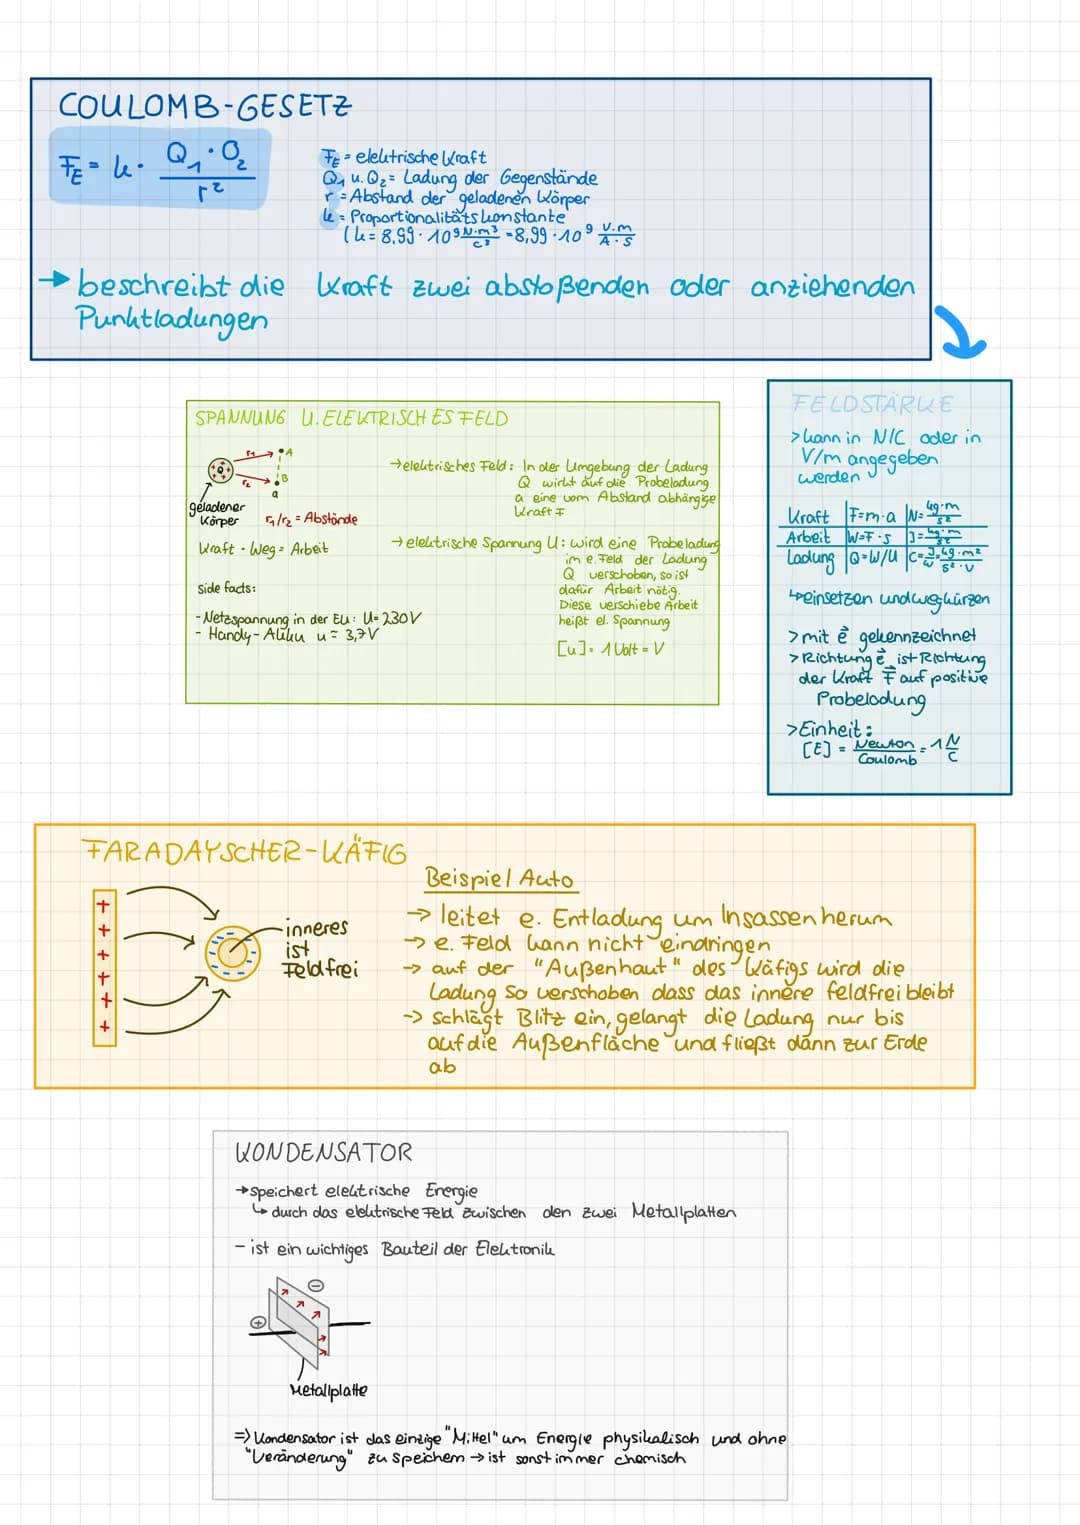 COULOMB-GESETZ
F_E = k · Q₁ · Q₂ / r²
F_E = elektrische Kraft
Q₁ u. Q₂ = Ladung der Gegenstände
r = Abstand der geladenen Körper
k = Proportionalitätskonstante
(k = 8,99 · 10⁹ N·m²/C² = 8,99 · 10⁹ V·m/A·s
→ beschreibt die Kraft zwei abstoßenden oder anziehenden
Punktladungen
SPANNUNG U. ELEKTRISCHES FELD
r₁ A
Q
r₂ B
a
geladener
Körper
r₁/r₂ = Abstände
Kraft · Weg = Arbeit
side facts:
- Netzspannung in der EU: U = 230V
- Handy-Akku u = 3,7V
→ elektrisches Feld: In der Umgebung der Ladung
Q wirkt auf die Probeladung
a eine vom Abstand abhängige
Kraft F
→ elektrische Spannung U: wird eine Probeladung
im e. Feld der Ladung
Q verschoben, so ist
dafür Arbeit nötig.
Diese verschiebe Arbeit
heißt el. Spannung
[u] = 1 Volt = V
FELDSTÄRKE
> kann in N/C oder in
V/m angegeben
werden
Kraft F=m·a N= kg·m/s²
Arbeit W=F·s
Ladung Q=W/U
↳ einsetzen und wegkürzen
> mit e⃗ gekennzeichnet
> Richtung e⃗ ist Richtung
der Kraft F⃗ auf positive
Probeladung
> Einheit:
[E] = Newton/Coulomb = 1 N/C
FARADAYSCHER-KÄFIG
+
+
+
+
+
+
inneres
ist
Feldfrei
Beispiel Auto
→ leitet e. Entladung um Insassen herum
→ e. Feld kann nicht eindringen
→ auf der "Außenhaut" des Käfigs wird die
Ladung so verschoben dass das innere feldfrei bleibt
→ schlägt Blitz ein, gelangt die Ladung nur bis
auf die Außenfläche und fließt dann zur Erde
ab
KONDENSATOR
→ speichert elektrische Energie
↳ durch das elektrische Feld zwischen den zwei Metallplatten
- ist ein wichtiges Bauteil der Elektronik
⊖
⊕
Metallplatte
=> Kondensator ist das einzige "Mittel" um Energie physikalisch und ohne
"Veränderung" zu speichern → ist sonst immer chemisch